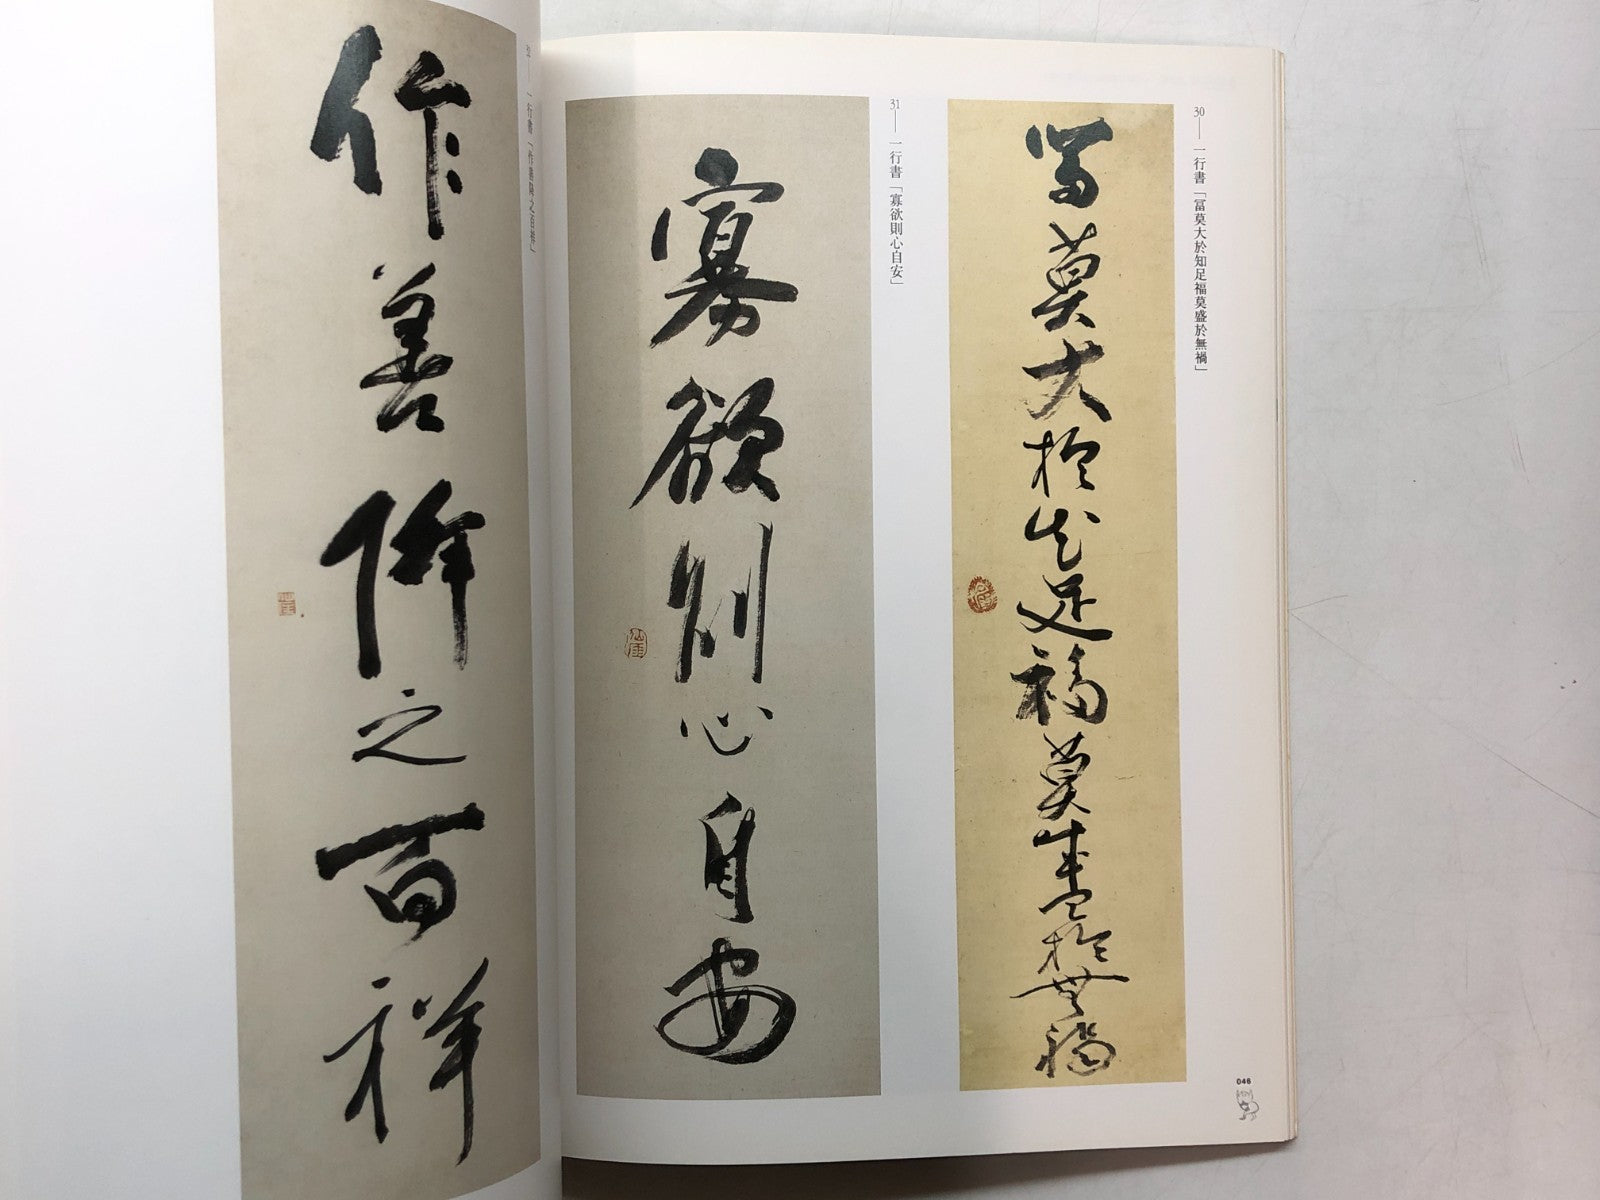 30——一行書「冨莫大於知足福莫盛於無禍」
冨莫大於知足福莫盛於無禍
31——一行書「寡欲則心自安」
寡欲則心自安
仙厓
046
32——一行書「作善降之百祥」
作善降之百祥